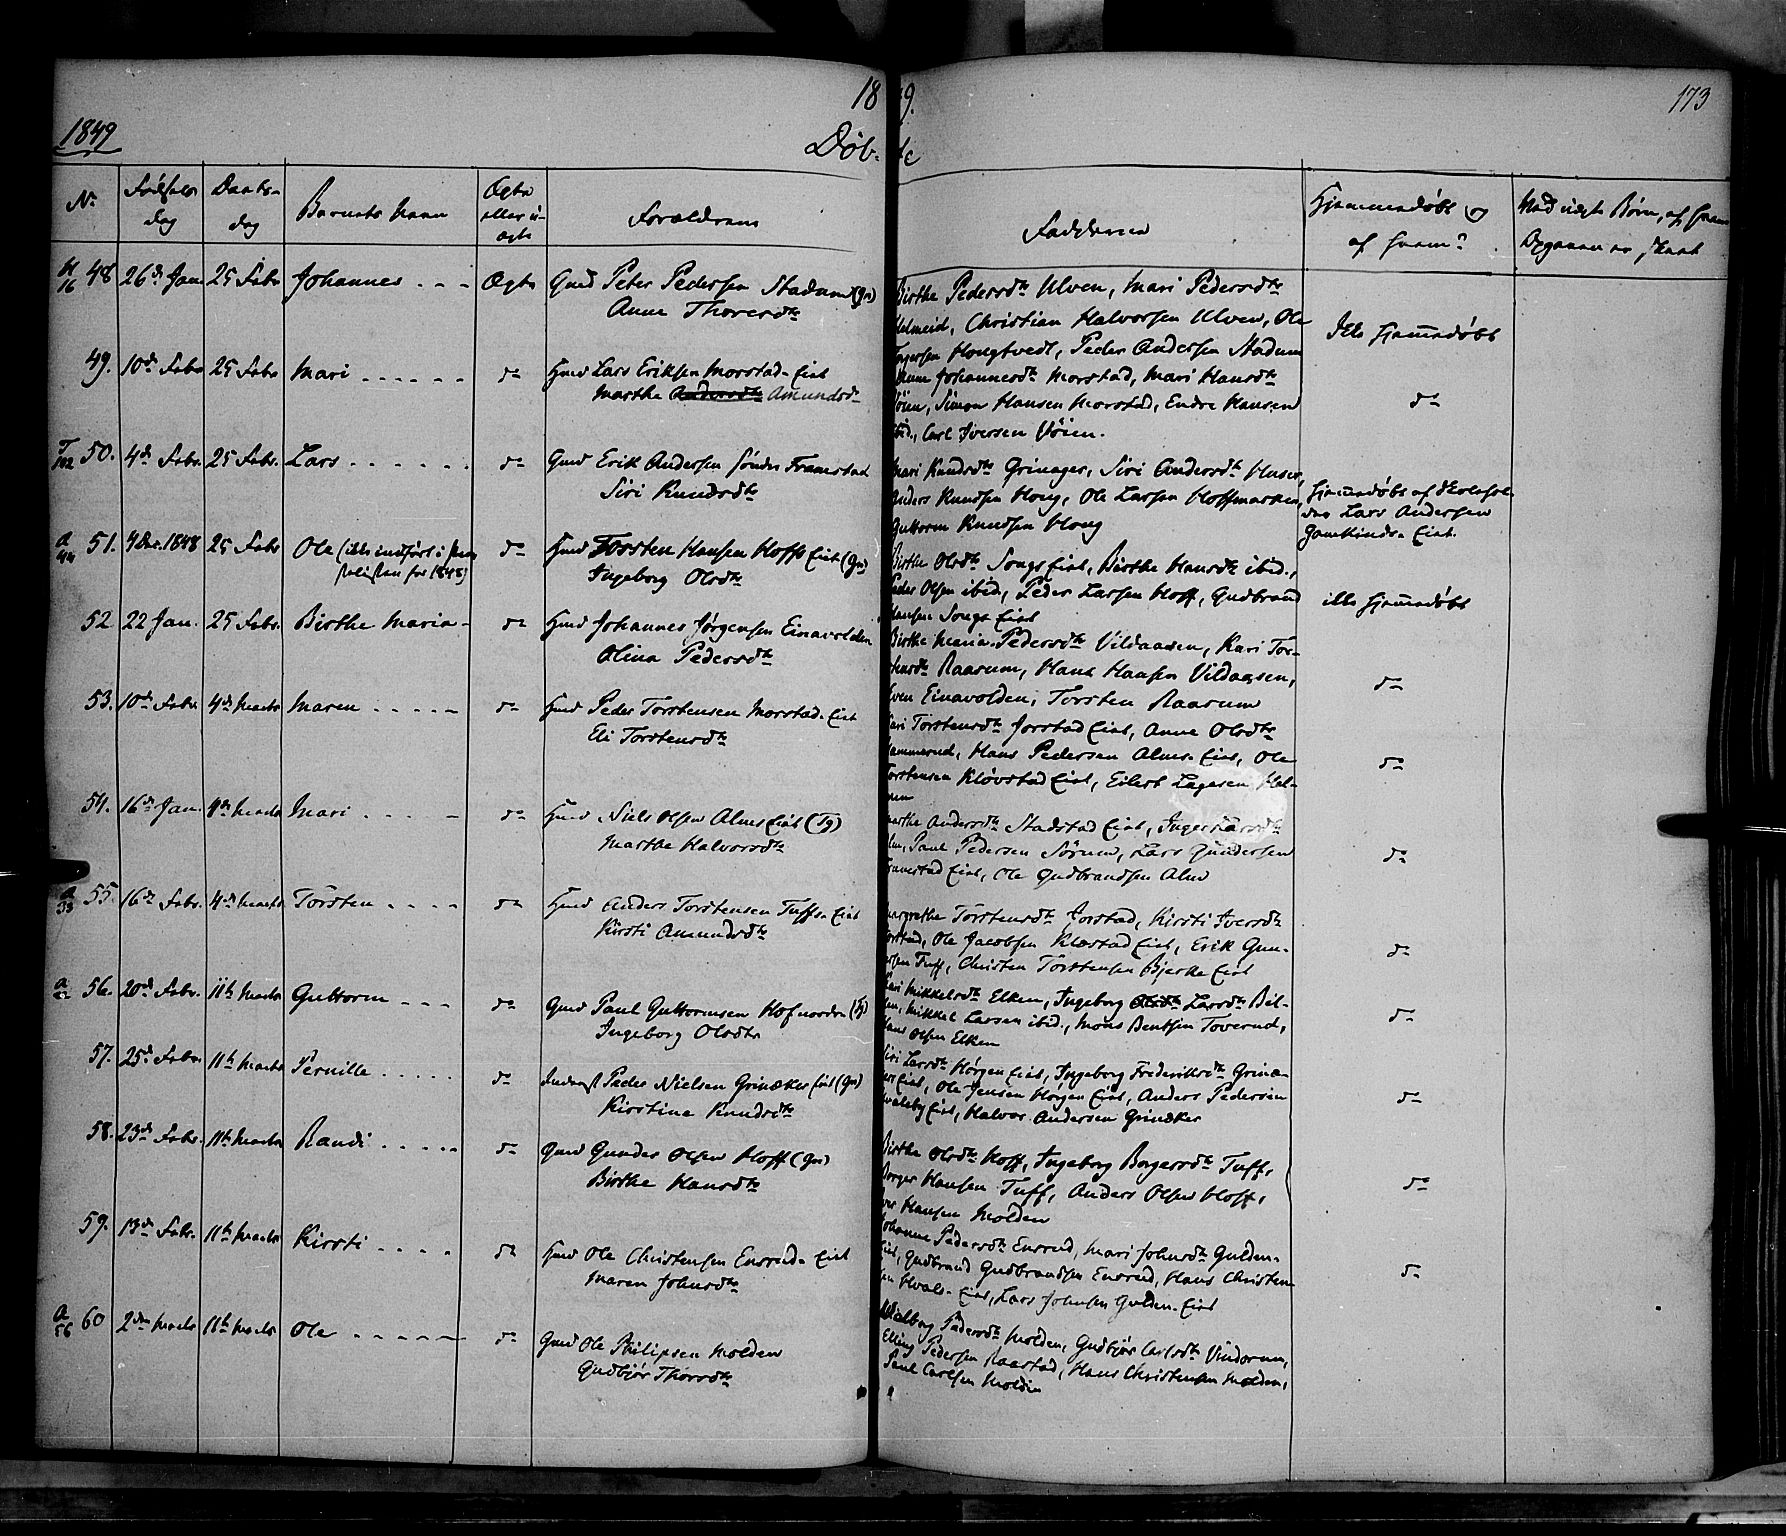 1849
1849.
173
Døbte
No
Fødsels dag
Daabs- dag
Barnets Navn
Ægte eller u- ægte
Forældrene
Fadderne
Hjemmedøbt og af hvem?
48 26de Jan. 25 Febr Johannes - - - Ægte Gmd Peter Pedersen Stadum (Gr)
Anne Thoresdtr
Birthe Pedersdtr Ulven, Mari Pedersdtr
Christian Halvorsen Ulven, Ole
Hougtvedt, Peder Andersen Stadum
Ikke hjemmedøbt
49. 10de Febr 25 Febr Mari - - - - - - do Hmd Lars Eriksen Morstad-Eiet
Marthe Andersdtr Amundsd-
Johannesdtr Morstad, Mari Hansdtr
Simon Hansen Morstad, Endre Hansen
ibid., Carl Iversen Vöien.
do
50. 4de Febr. 25 Febr. Lars - - - - - - do Gmd Erik Andersen Søndre Framstad
Siri Knudsdtr
Mari Knudsdtr Grinager, Siri Andersdtr
Anders Knudsen Houg, Ole Larsen Hoffmarken,
Guttorm Knudsen Houg
Hjemmedøbt af Skolehol-
der Lars Andersen
Eiet.
51. 4 Dec. 1848 25 Febr Ole (ikke indført i
for 1848) do Hmd Torsten Hansen Hoffs Eiet (Gr)
Ingeborg Olsdtr
Birthe Olsdtr Songs Eiet, Birthe Hansdtr ibid.,
Peder Olsen ibid., Peder Larsen Hoff, Gudbrand
Hansen Songs Eiet
ikke hjemmedøbt
52 22 Jan. 25 Febr. Birthe Maria - do Hmd Johannes Jørgensen Einavolden
Olina Pedersdtr
Birthe Maria Pedersdtr Vildaasen, Kari Tor-
stensdtr Raasum, Hans Hansen Vildaasen,
Einavolden, Torsten Raasum
do
53. 10de Febr. 4de Marts Maren - - - - - do Hmd Peder Torstensen Morstad-Eiet
Eli Torstensdtr
Kari Torstensdtr Jorstad Eiet, Anne Olsdtr
Hans Pedersen Alms-Eiet, Ole
Torstensen Kløvstad Eiet, Eilert Lagesen
do
54. 16de Jan. 4de Marts Mari - - - - do Hmd Niels Olsen Alms Eiet (Tg)
Marthe Halvorsdtr
Marthe Andersdtr Stadstad Eiet, Inger Larsdtr
Alm, Paul Pedersen Sørum, Lars Gundersen
Eiet, Ole Gudbrandsen Alm
do
55. 16de Febr. 4de Marts Torsten - - - - do Hmd Anders Torstensen Tuffs-Eiet
Kirsti Amundsdtr
Margrethe Torstensdtr Jorstad, Kirsti Iversdtr
Jorstad, Ole Jacobsen Klæstad Eiet, Erik Gun-
dersen Tuff, Christen Torstensen Bjerke Eiet
do
56. 20de Febr. 11te Marts Guttorm - - - do Gmd Paul Guttormsen Hof nordre (Tg)
Ingeborg Olsdtr
Kari Mikkelsdtr Elken, Ingeborg Olsdtr Larsdtr Bil-
den, Mikkel Larsen ibid., Mons Bentsen Toverud,
Hans Olsen Elken
do
57. 25de Febr. 11te Marts Pernille - - - - - do Inderst Peder Nielsen Grinæker Eiet (Gr)
Kirstine Knudsdtr
Siri Larsdtr Horgen Eiet, Ingeborg Frederiksdtr Grinæ-
ker Eiet, Ole Jensen Horgen Eiet, Anders Pedersen
Hvaleby Eiet, Halvor Andersen Grinæker
do
58. 23de Febr. 11te Marts Randi - - - - - do Gmd Gunder Olsen Hoff (Gr)
Birthe Hansdtr
Birthe Olsdtr Hoff, Ingeborg Borgersdtr Tuff,
Borger Hansen Tuff, Anders Olsen Hoff,
Iver Hansen Molden
do
59. 13de Febr. 11te Marts Kirsti - - - - do Hmd Ole Christensen Ensrud-Eiet
Maren Johnsdtr
Johanne Pedersdtr Ensrud, Mari Johnsdtr Gulden-
Eiet, Gudbrand Gudbrandsen Ensrud, Hans Christen-
sen Hvals-Eiet, Lars Johnsen Gulden-Eiet
do
60 2den Marts 11te Marts Ole - - - - - do Gmd Ole Philipsen Molden
Gudbjør Thorsdtr
Pedersdtr Molden, Gudbjør Carlsdtr Vindorum,
Elling Pedersen Raastad, Hans Christensen Molden,
Paul Carlsen Molden